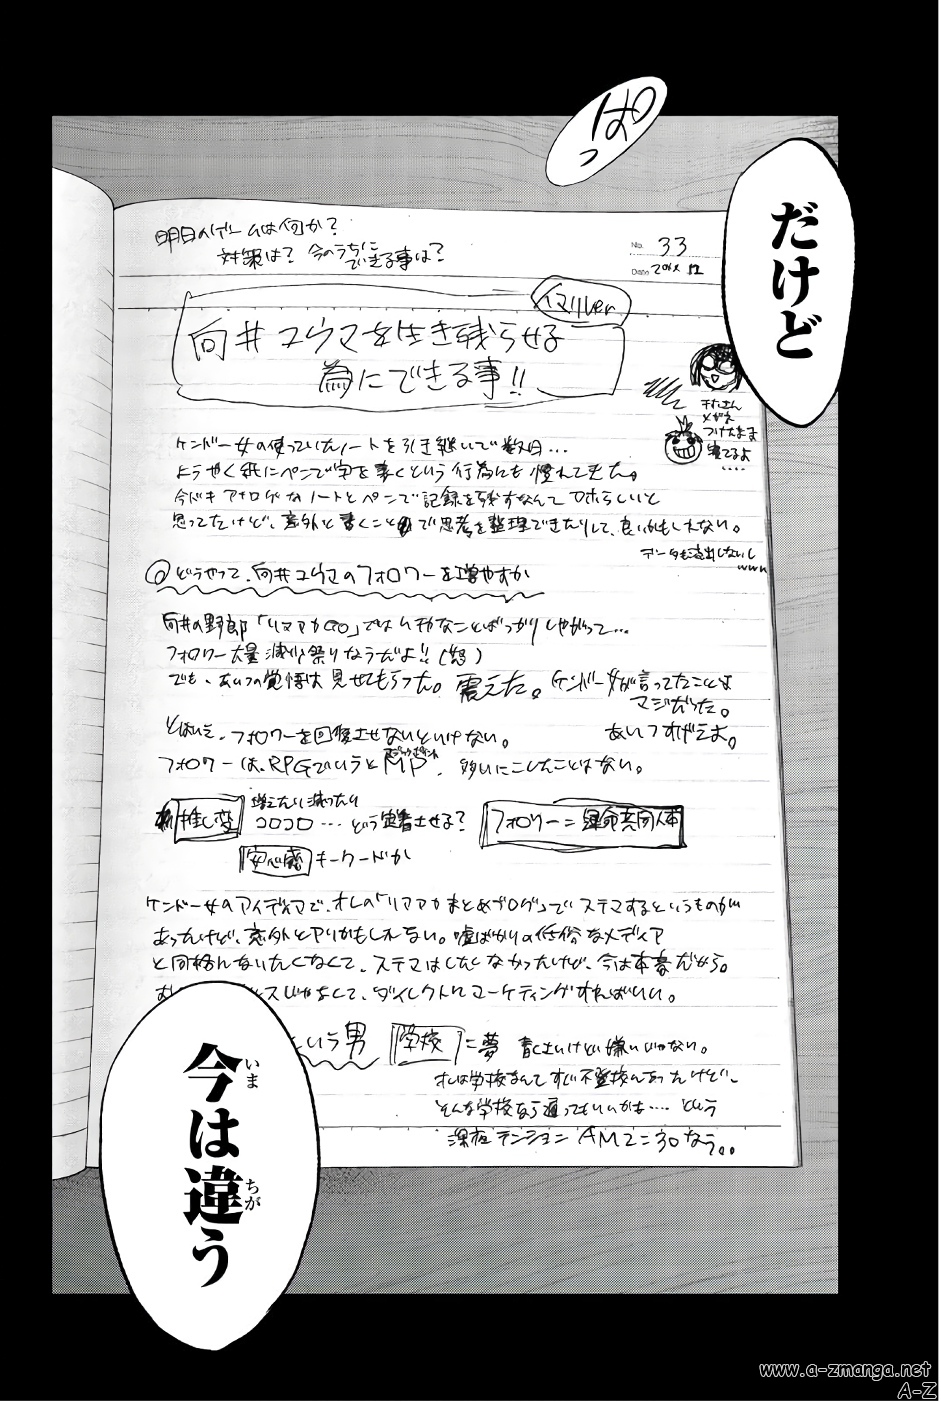 だけど
ぱっ
明日のゲームは何か?
対策は? 今のうちに
できる事は?
No. 33
Date
イマリver
向井ユウマを生き残らせる
為にできる事!!
メガネ
つけたまま
寝てるよ
....
ケンドー女の使っていたノートを引き継いで数日...
ようやく紙にペンで字を書くという行為にも慣れてきた。
今ドキアナログなノートとペンで記録を残すなんてアホらしいと
思ってたけど、意外と書くことで思考を整理できたりして、良いかもしれない。
データも流出しないし
www
◎どうやって、向井ユウマのフォロワーを増やすか
向井の野郎「リアアカGO」では
なことばっかりしやがって...
フォロワー大量減少祭りなうだよ!!(怒)
でも、あいつの覚悟は見せてもらった。震えた。ケンドー女が言ってたことは
マジだった。
あいつすげえよ。
とはいえ、フォロワーを回復させないといけない。
フォロワーは、RPGでいうとMP。多いにこしたことはない。
推し変 増えたり減ったり
コロコロ... どう定着させる? フォロワー=運命共同体
安心感 キーワードか
ケンドー女のアイディアで、オレの「リアアカまとめブログ」でステマするというものが
あったけど、意外とアリかもしれない。嘘ばかりの低俗なメディア
と同格んなりたくなくて、ステマはしたくなかったけど、今は本音だから。
じゃなくて、ダイレクトにマーケティングすればいい。
という男 学校に夢 青くさいけど嫌いじゃない。
オレは学校なんてすぐ不登校んなったけど、
そんな学校なら通ってもいいかも.... という
深夜テンション AM2:30なう。。
今は違う
いま
ちが
www.a-zmanga.net
A-Z